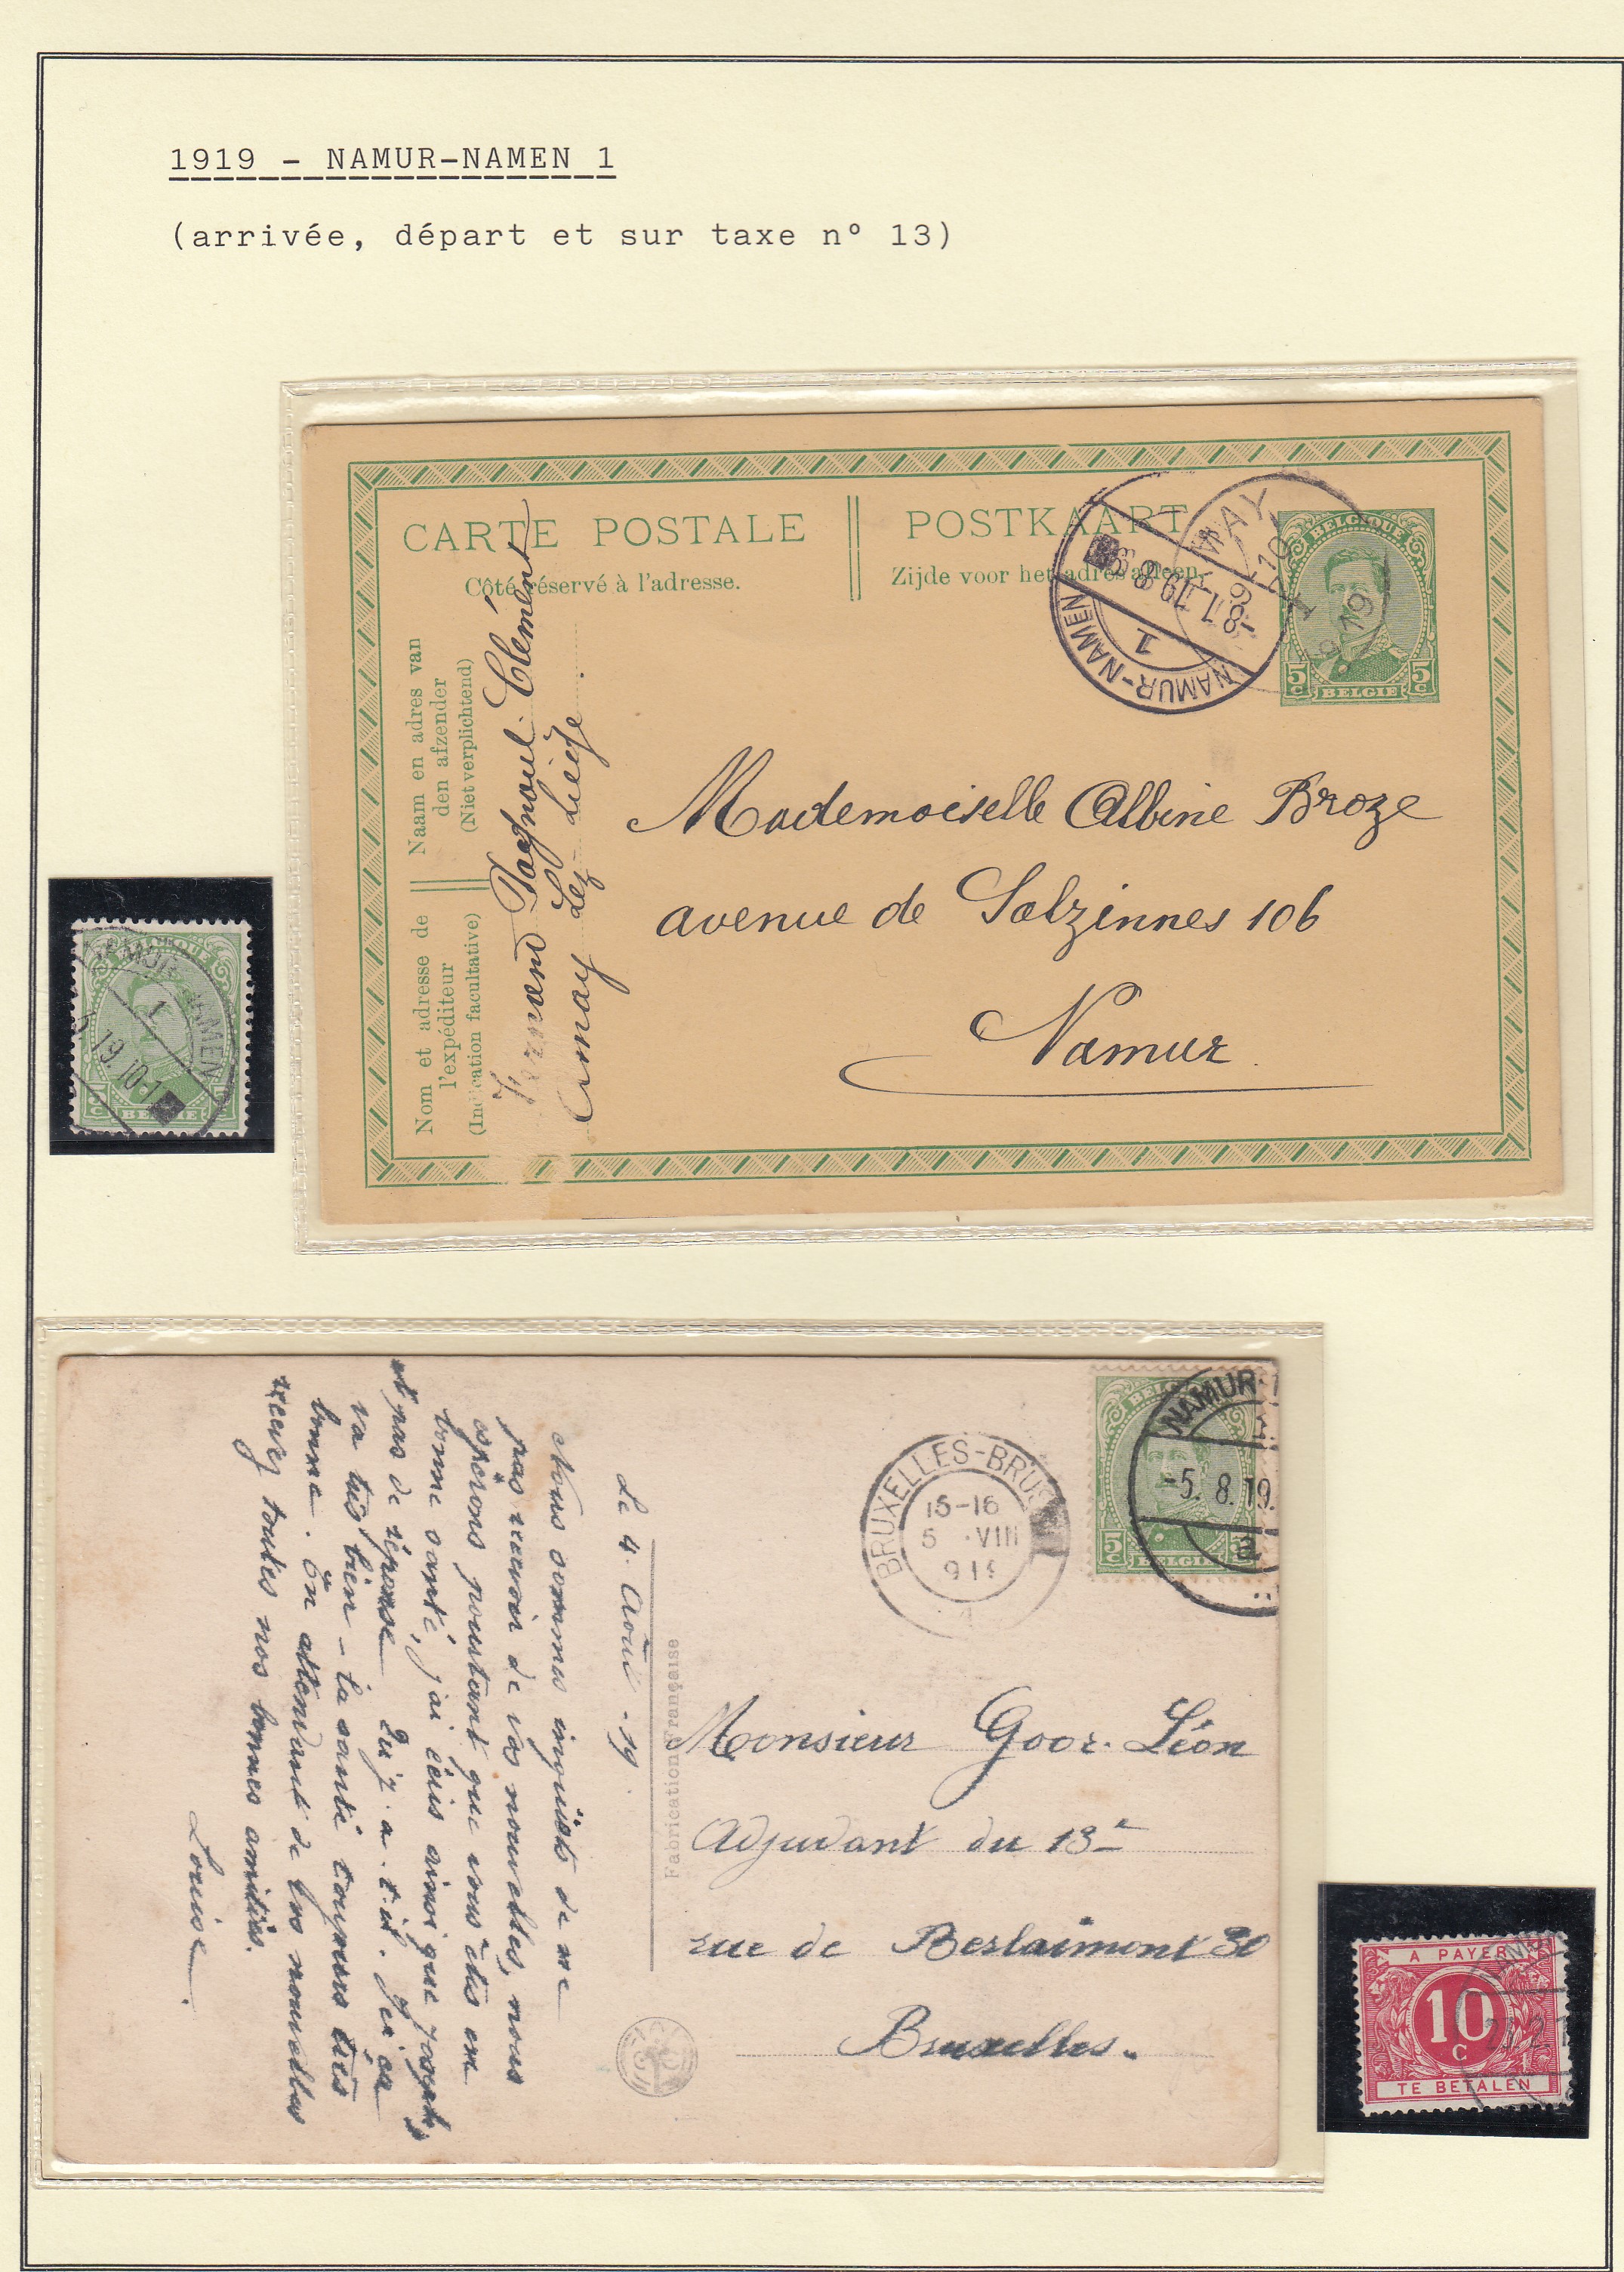 1919 – NAMUR-NAMEN 1
(arrivée, départ et sur taxe n° 13)
CARTE POSTALE
Côté réservé à l'adresse.
POSTKAART
Zijde voor het adres alleen.
NAMUR-NAMEN
1
BELGIQUE
5c BELGIE 5c
Naam en adres van
den afzender
(Niet verplichtend)
Nom et adresse de
l'expéditeur
(Indication facultative)
Fernand Pagnoul-Clément
Amay Lez-Liége
Mademoiselle Albine Broze
avenue de Salzinnes 106
Namur
BELGIQUE
NAMUR-NAMEN
1
19.10-1
BELGIE
Le 4 Août - 19.
Nous sommes inquiets de ne
pas recevoir de vos nouvelles, nous
espérons pourtant que vous êtes en
bonne santé, j'ai écris ainsi que Joseph,
et pas de réponse. Qu'y a-t-il. Ici ça
va très bien - la santé toujours très
bonne. En attendant de vos nouvelles
recevez toutes nos bonnes amitiés.
Louise.
Fabrication Française
BRUXELLES-BRUS
15-16
5 VIII
191
NAMUR-
-5.8.19.
a
5c BELGIE
Monsieur Goor. Léon
Adjudant du 13e
rue de Berlaimont 30
Bruxelles.
A PAYER
10
C
TE BETALEN